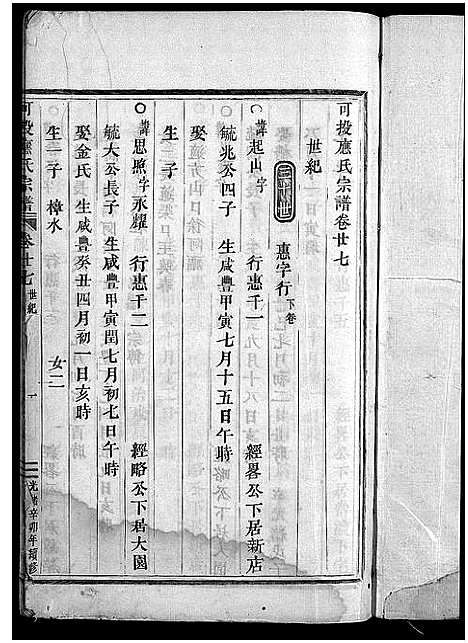 可投應氏宗譜卷廿七
世紀
三十世 惠字行下卷
○諱起山字 行惠千一 經畧公下居新店
毓兆公四子 生咸豐甲寅七月十五日午時
娶
生 子
○諱思照字永耀 行惠千二 經略公下居大園
毓大公長子 生咸豐甲寅閏七月初七日午時
娶金氏 生咸豐癸丑四月初一日亥時
生一子 樟水 女二
可投應氏宗譜 卷廿七 世紀 一 光緒辛卯年續修